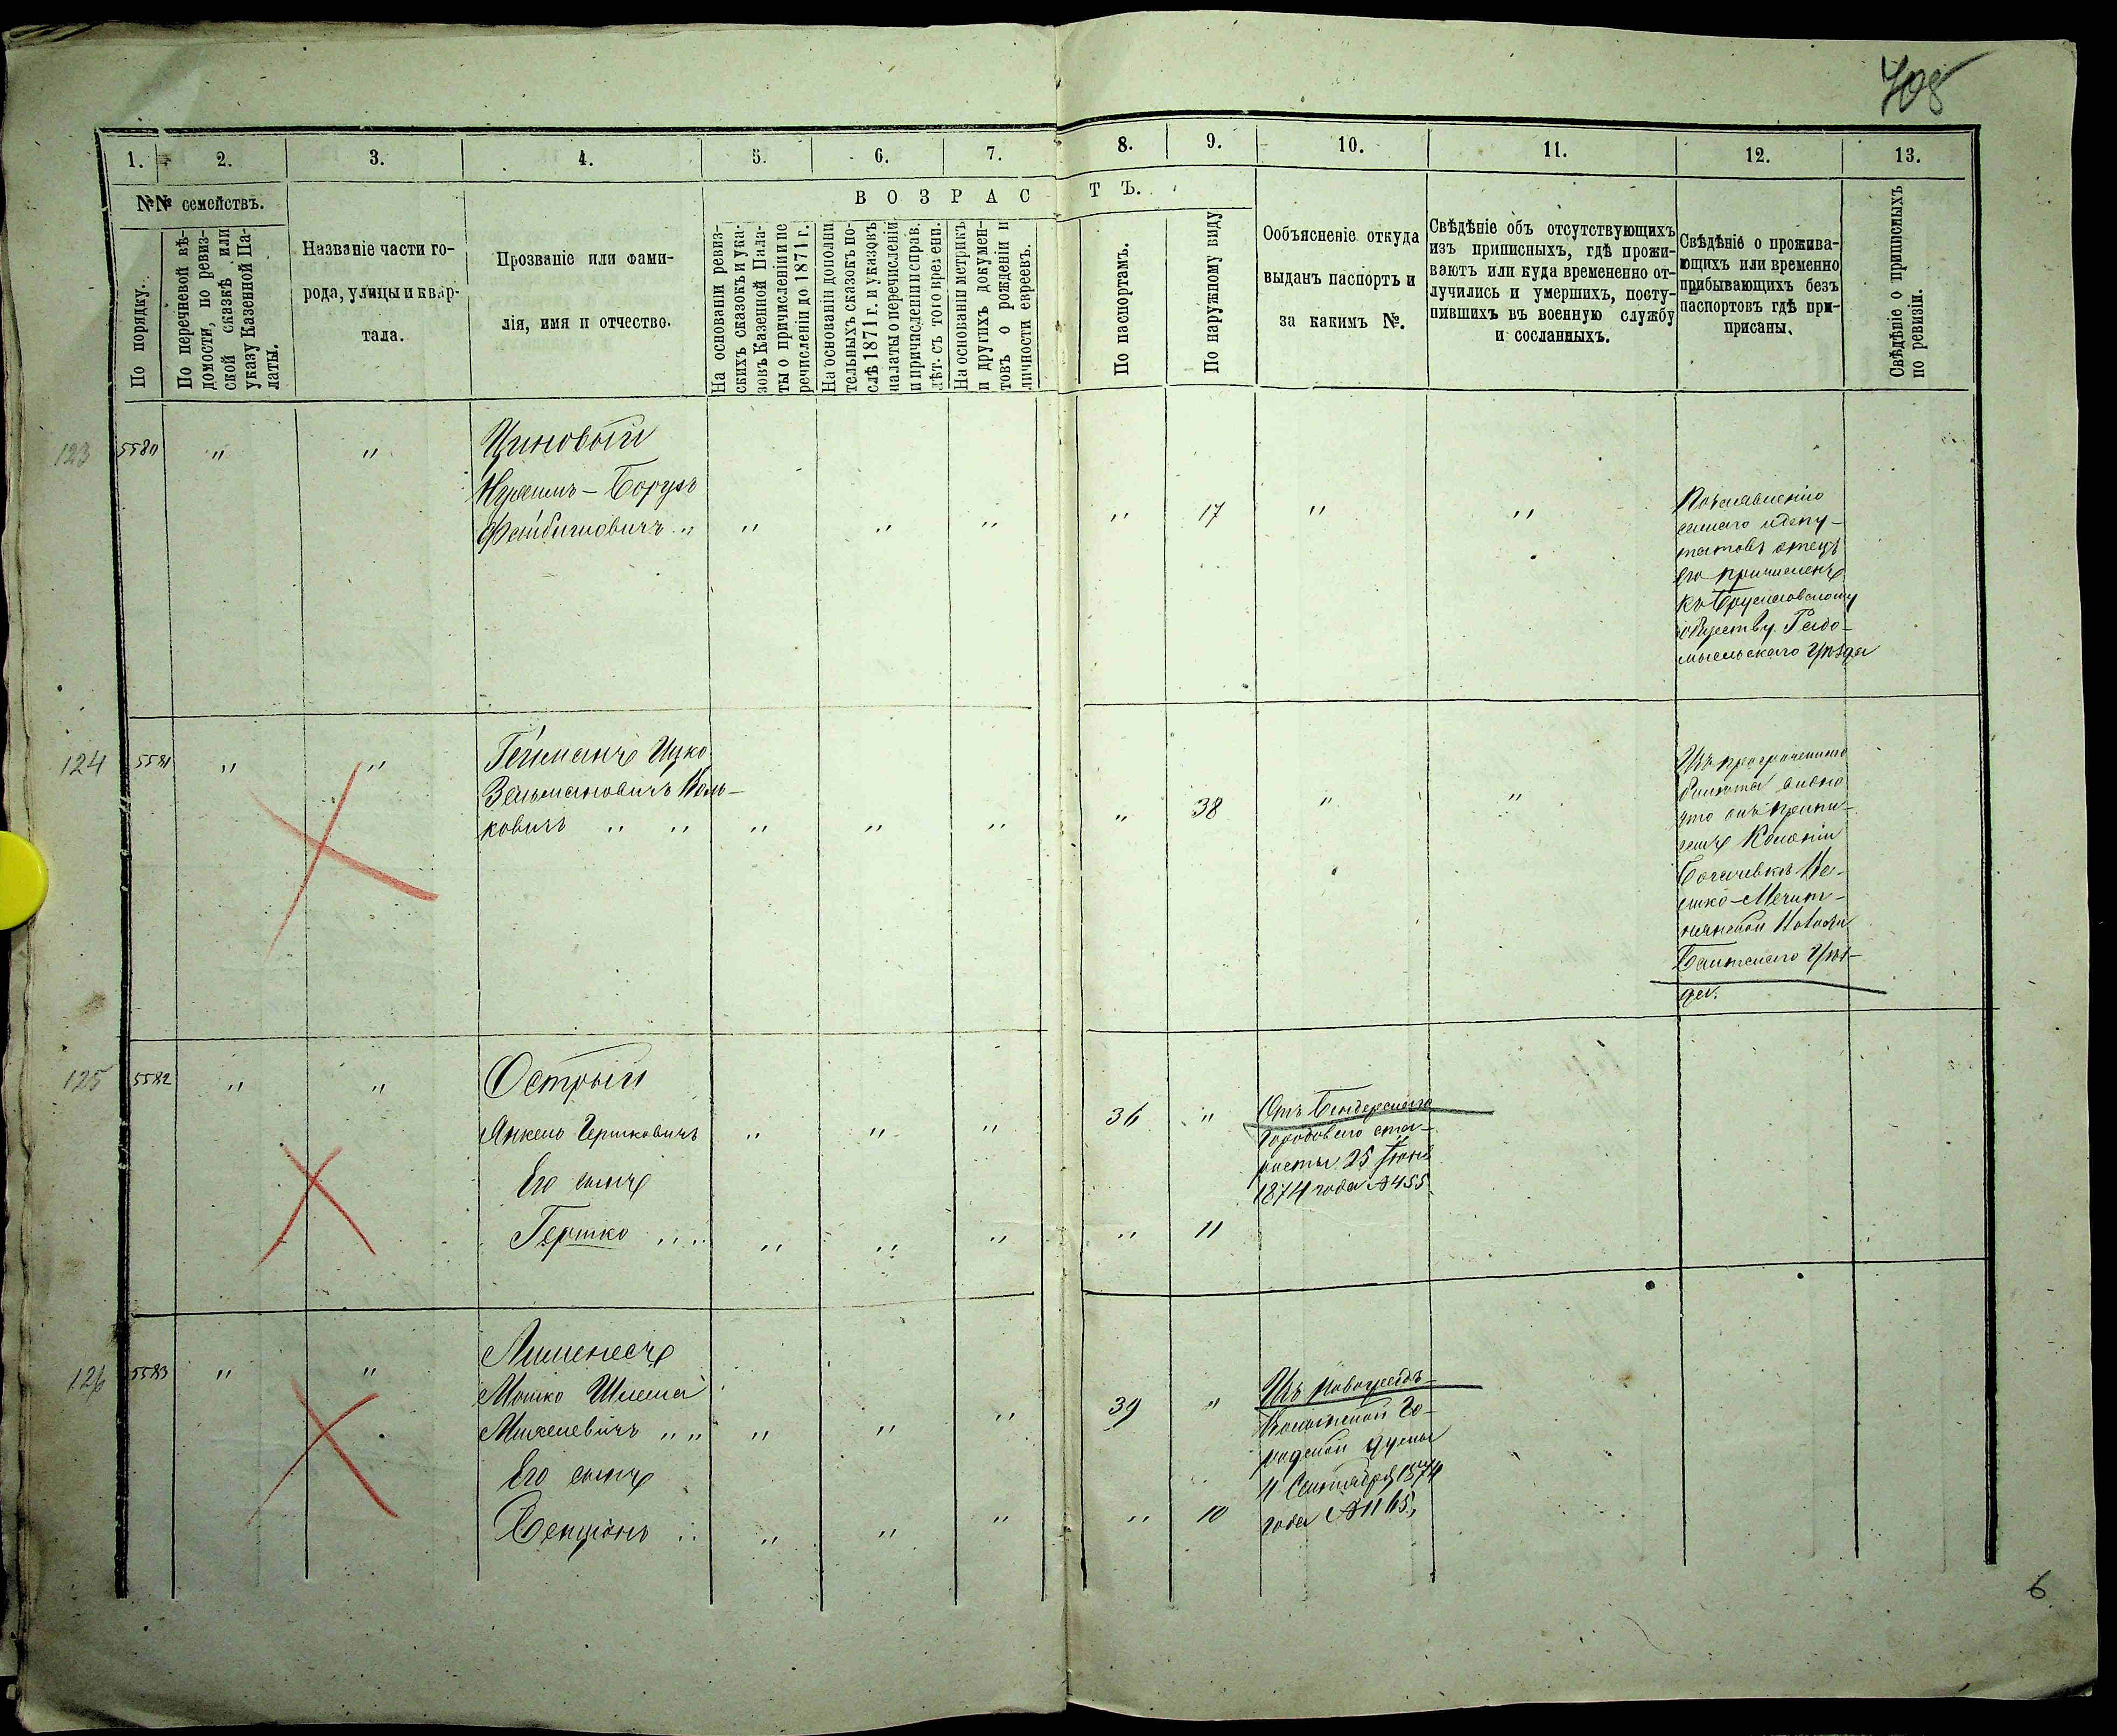 408
1. 2. 3. 4. 5. 6. 7. 8. 9. 10. 11. 12. 13.
№№ семействъ.
По порядку.
По перечневой вѣ-
домости, по ревиз-
ской сказкѣ или
указу Казенной Па-
латы.
Названіе части го-
рода, улицы и квар-
тала.
Прозваніе или фами-
лія, имя и отчество.
ВОЗРАСТЪ.
На основаніи ревиз-
скихъ сказокъ и ука-
зовъ Казенной Пала-
ты о причисленіи и пе
речисленіи до 1871 г.
На основаніи дополни
тельныхъ сказокъ по-
слѣ 1871 г. и указовъ
палаты о перечисленіи
и причисленіи и справ.
лѣт. съ того времени.
На основаніи метрикъ
и другихъ докумен-
товъ о рожденіи и
личности евреевъ.
По паспортамъ.
По наружному виду
Ообъясненіе откуда
выданъ паспортъ и
за какимъ №.
Свѣдѣніе объ отсутствующихъ
изъ приписныхъ, гдѣ прожи-
ваютъ или куда временно от-
лучились и умершихъ, посту-
пившихъ въ военную службу
и сосланныхъ.
Свѣдѣніе о прожива-
ющихъ или временно
прибывающихъ безъ
паспортовъ гдѣ при-
присаны.
Свѣдѣніе о приписныхъ
по ревизіи.
123 5580 " " Циновый
Борухъ
Файбишовичъ " " " " " 17 " "
отецъ
его причисленъ
къ Брусиловскому
обществу Радо-
мысльскаго Уѣзда
124 5581 " " Гейманъ Ицко
Зельмановичъ Воль-
ковичъ " " " " " " 38 " "
Изъ просроченнаго
билета видно
что онъ припи-
санъ Колоніи
Богачевкѣ
Балтскаго Уѣз-
да.
125 5582 " " Острый
Янкель Гершковичъ " " " 36 "
Его сынъ
Гершко " " " " " " 11
Отъ Бендерскаго
Городоваго ста-
росты 25 Іюня
1874 года № 455
126 5583 " "
Мошко Шлема
Михелевичъ " " " " " 39 "
Его сынъ
Бенціонъ " " " " " 10
Изъ Новоградъ-
Волынской Го-
родской Думы
4 Сентября 1874
года № 1165,
6